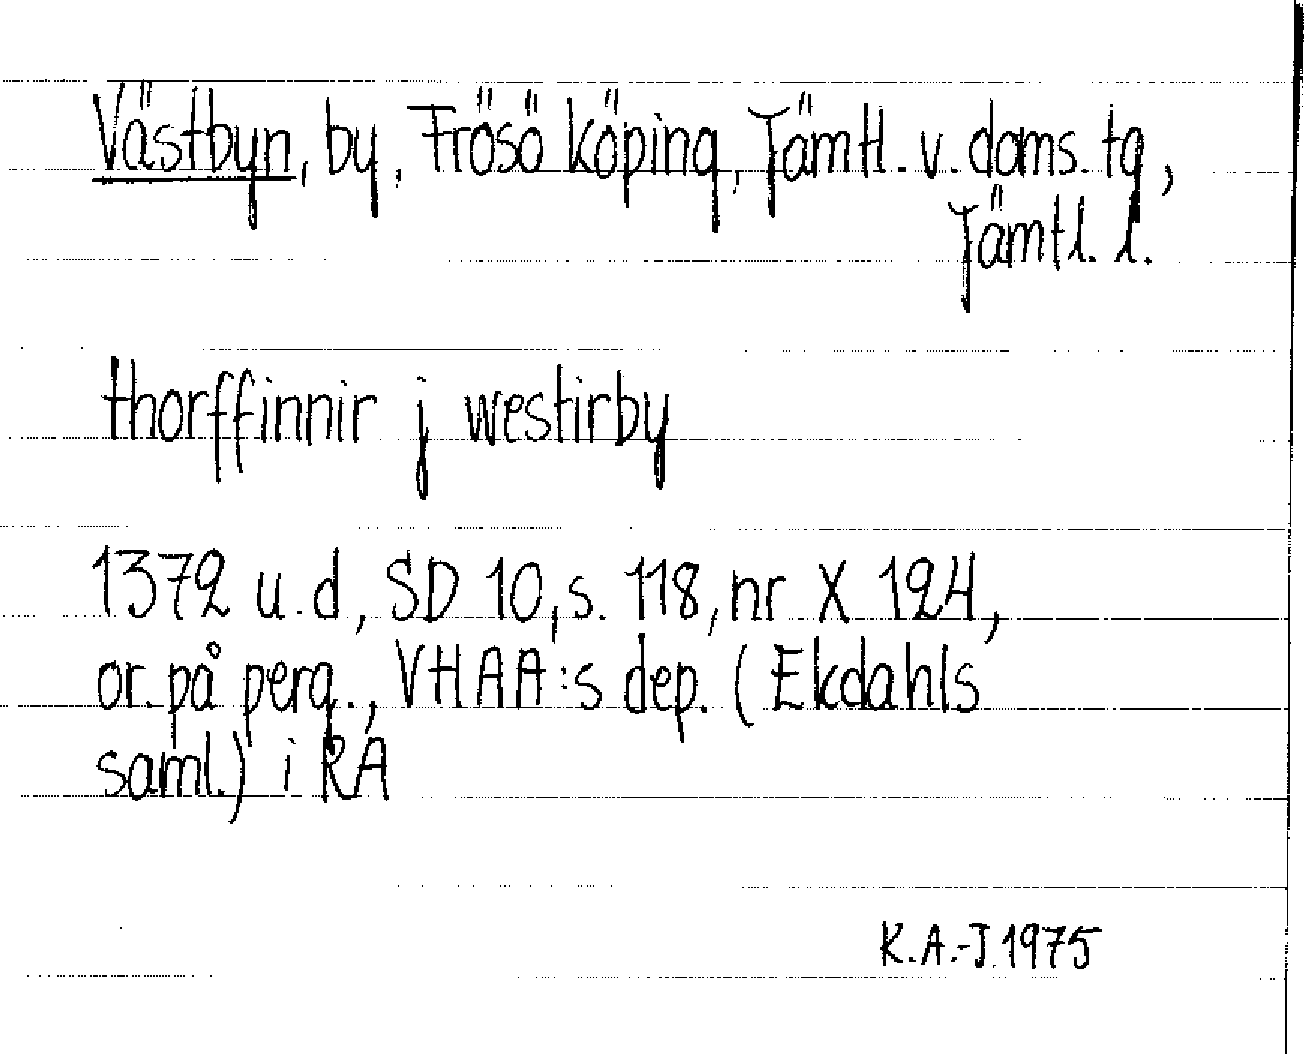 Västbyn, by, Frösö köping, Jämtl. v. doms. tg,
Jämtl. l.
thorffinnir j westirby
1372 u.d, SD 10, s. 118, nr X 124,
or. på perg., VHAA:s dep. (Ekdahls
saml.) i RA
K.A.-J. 1975